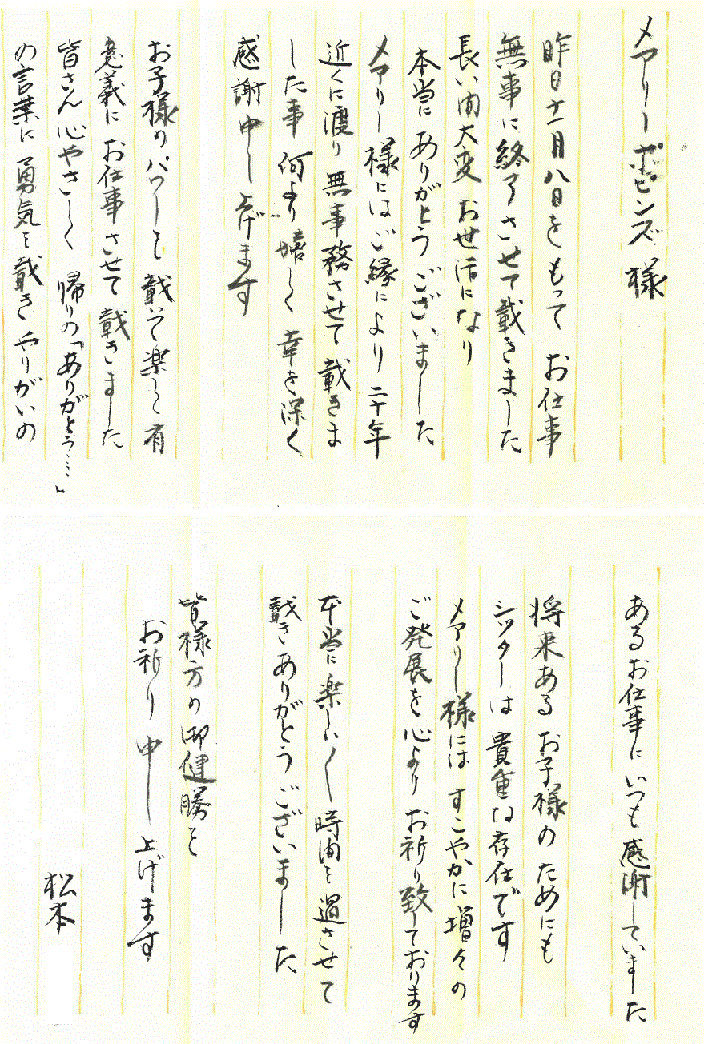 メアリーポピンズ様
昨日十一月八日をもって お仕事
無事に終了させて戴きました
長い間大変 お世話になり
本当に ありがとう ございました
メアリー様にはご縁により 二十年
近くに渡り 無事務させて 戴きま
した事 何より嬉しく 幸せ深く
感謝申し上げます
お子様のパワーを 戴いて楽しく有
意義に お仕事させて 戴きました
皆さん心やさしく 帰りの「ありがとう…」
の言葉に 勇気を戴き やりがいの
あるお仕事に いつも 感謝していました
将来ある お子様の ためにも
シッターは 貴重な存在です
メアリー様には すこやかに増々の
ご発展を 心より お祈り致しております
本当に楽しい 時間を過させて
戴きありがとうございました
皆様方の御健勝を
お祈り申し上げます
松本